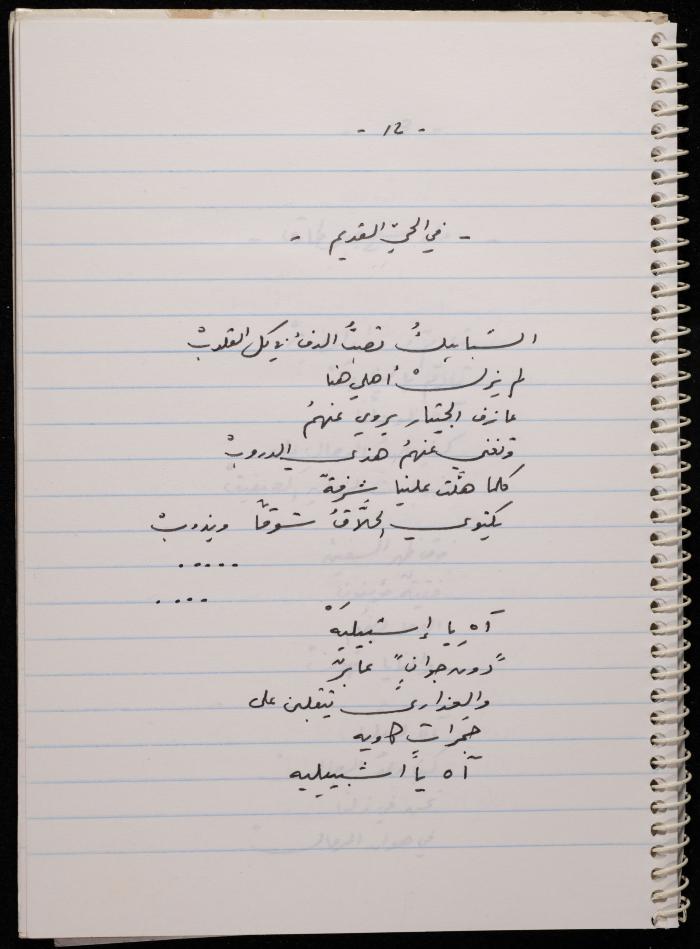 - 12 -
- في الحيّ القديم -
الشبابيكُ تصبُّ الدفءَ في كل القلوبْ
لم يزلْ أهلي هنا
عازف الجيتار يروي عنهمُ
وتغني عنهمُ هذي الدروبْ
كلما هلّت علينا شرفةٌ
يكتوي الحلّاقُ شوقاً ويذوبْ
.....
....
آه يا إشبيليَهْ
"دون جوان" عابرٌ
والعذارى يتقلبن على
جمرات حاميه
آه يا اشبيليه